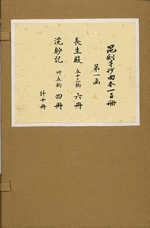 崑劇手抄曲本一百冊
第一函
長生殿 五十二齣 六冊
浣紗記 卅五齣 四冊
計十冊